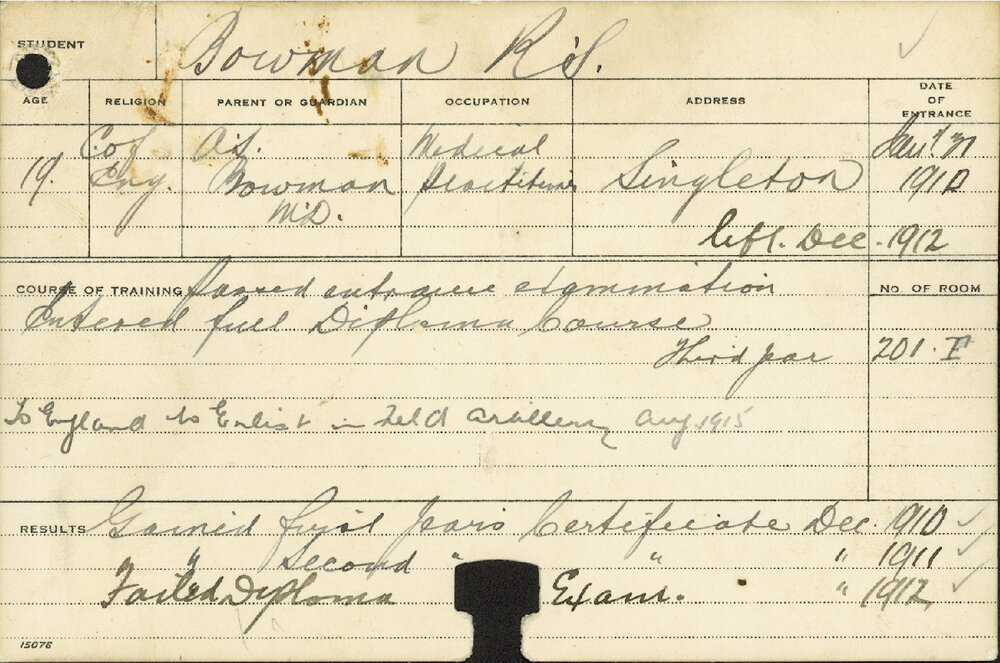 STUDENT Bowman R.S.
AGE RELIGION PARENT OR GUARDIAN OCCUPATION ADDRESS DATE OF ENTRANCE
19. C. of Eng. A.S. Bowman M.D. Medical Practitioner Singleton Jany 1910
left. Dec. 1912
COURSE OF TRAINING Passed entrance examination No. OF ROOM
Entered full Diploma Course
Third year 201. I
To England to Enlist in Field Artillery Aug 1915
RESULTS Gained first years Certificate Dec. 1910
" Second " " " 1911
Failed Diploma Exam. " 1912
15076